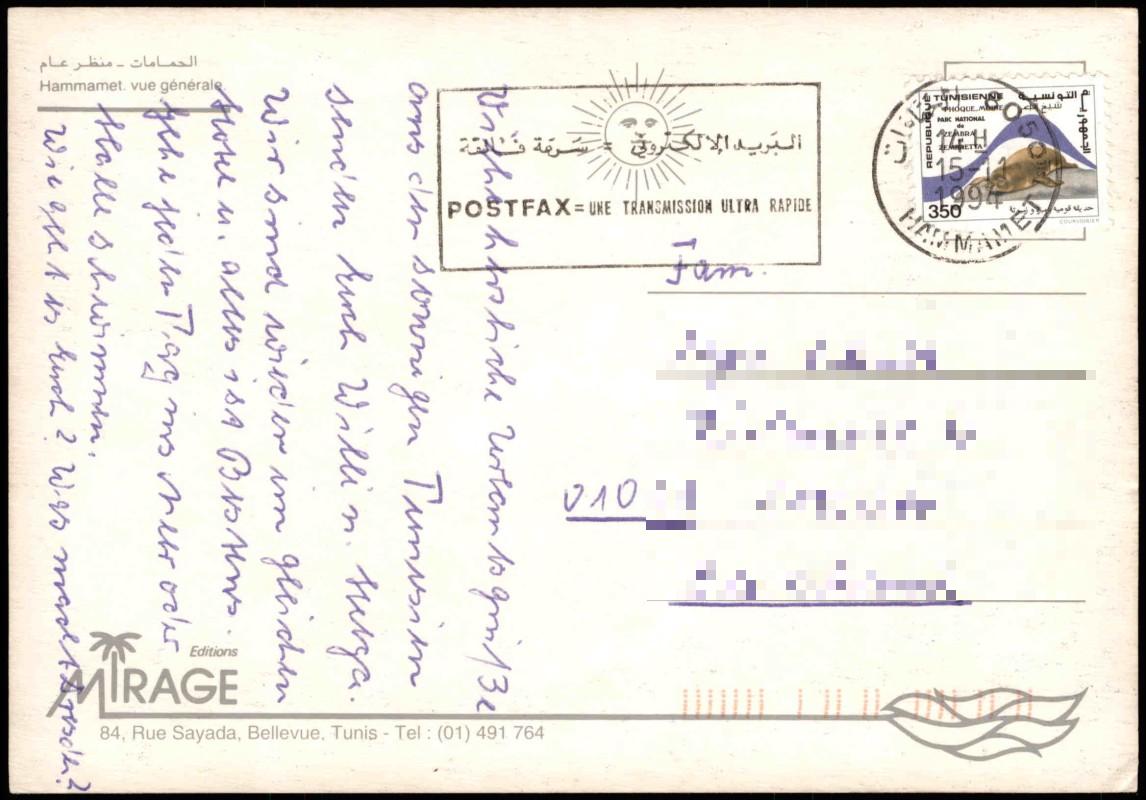 الحمامات ـ منظر عام
Hammamet. vue générale
البريد الإلكتروني = سرعة فائقة
POSTFAX = UNE TRANSMISSION ULTRA RAPIDE
REPUBLIQUE TUNISIENNE
الجمهورية التونسية
PHOQUE MOINE
PARC NATIONAL
de
ZEMBRA
ZEMBRETTA
350
COURVOISIER
14 H
15-11
1994
HAMMAMET
Viele herzliche Urlaubsgrüße
aus dem sonnigen Tunesien
senden Euch Willi u. Helga.
Wir sind wieder im gleichen
Hotel u. alles ist Bestens.
Gehe jeden Tag ins Meer oder
Halle schwimmen.
Wie geht es Euch? Was macht Dresden?
Fam.
010
Editions
MIRAGE
84, Rue Sayada, Bellevue, Tunis - Tel : (01) 491 764